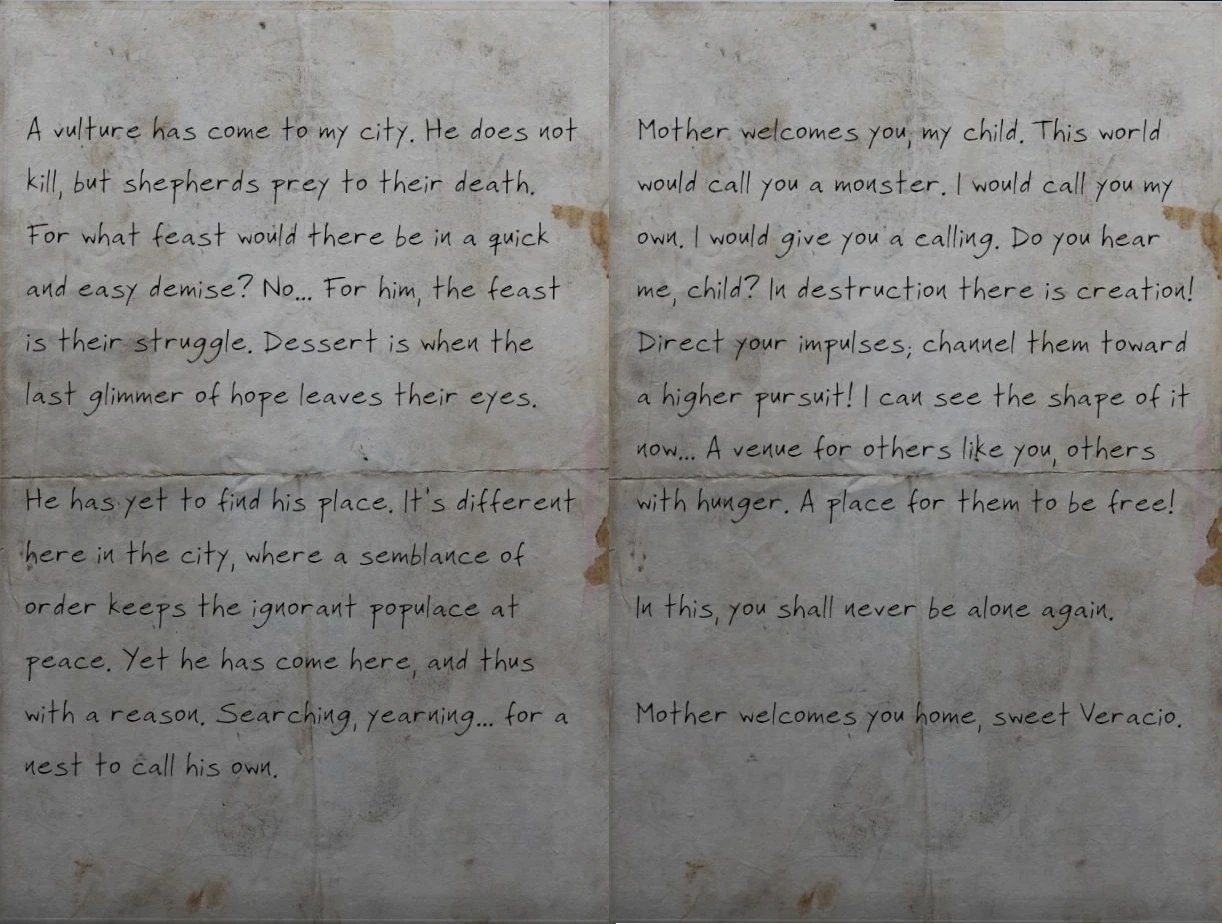 A vulture has come to my city. He does not
kill, but shepherds prey to their death.
For what feast would there be in a quick
and easy demise? No... For him, the feast
is their struggle. Dessert is when the
last glimmer of hope leaves their eyes.
He has yet to find his place. It's different
here in the city, where a semblance of
order keeps the ignorant populace at
peace. Yet he has come here, and thus
with a reason. Searching, yearning... for a
nest to call his own.
Mother welcomes you, my child. This world
would call you a monster. I would call you my
own. I would give you a calling. Do you hear
me, child? In destruction there is creation!
Direct your impulses; channel them toward
a higher pursuit! I can see the shape of it
now... A venue for others like you, others
with hunger. A place for them to be free!
In this, you shall never be alone again.
Mother welcomes you home, sweet Veracio.